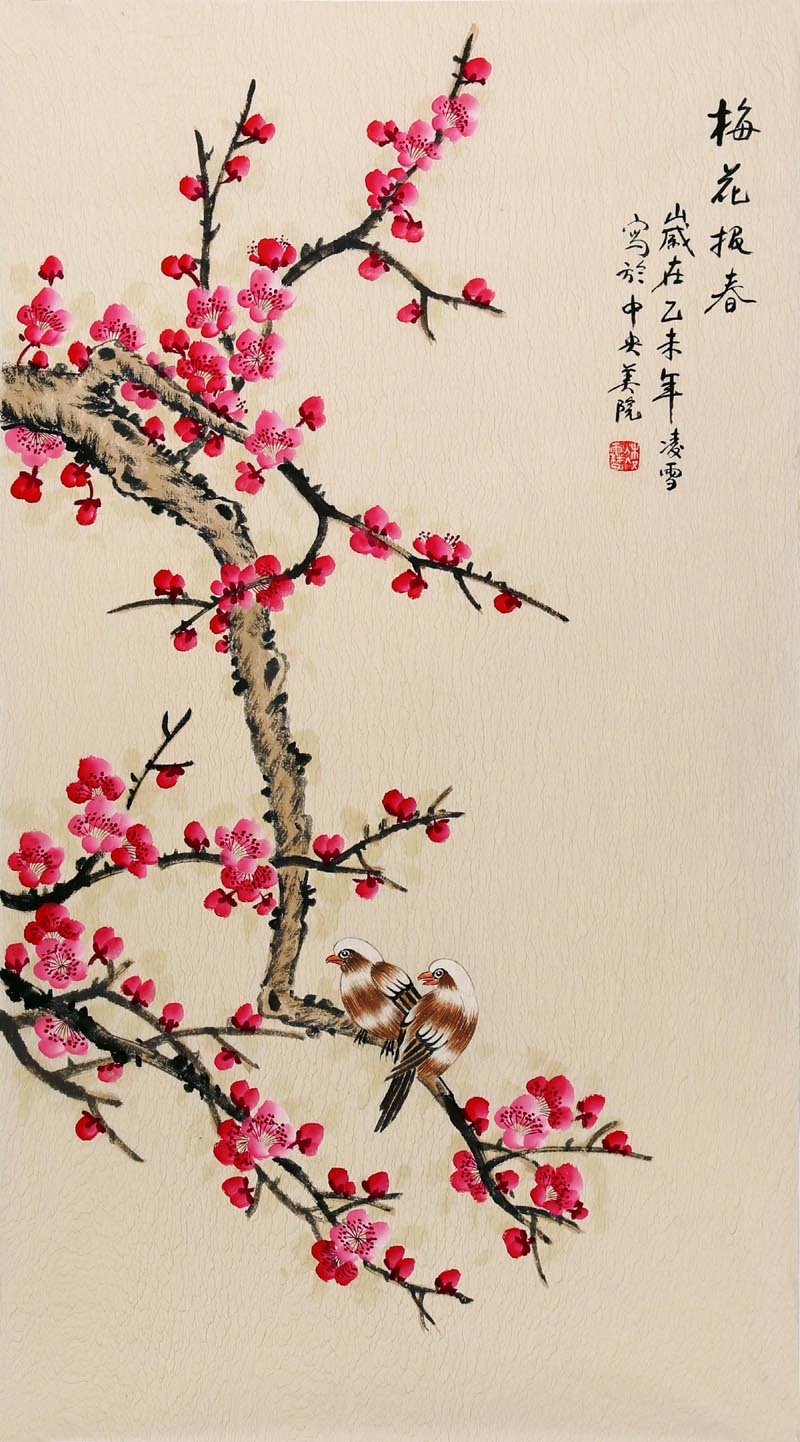 梅花报春
歲在乙未年凌雪
寫於中央美院